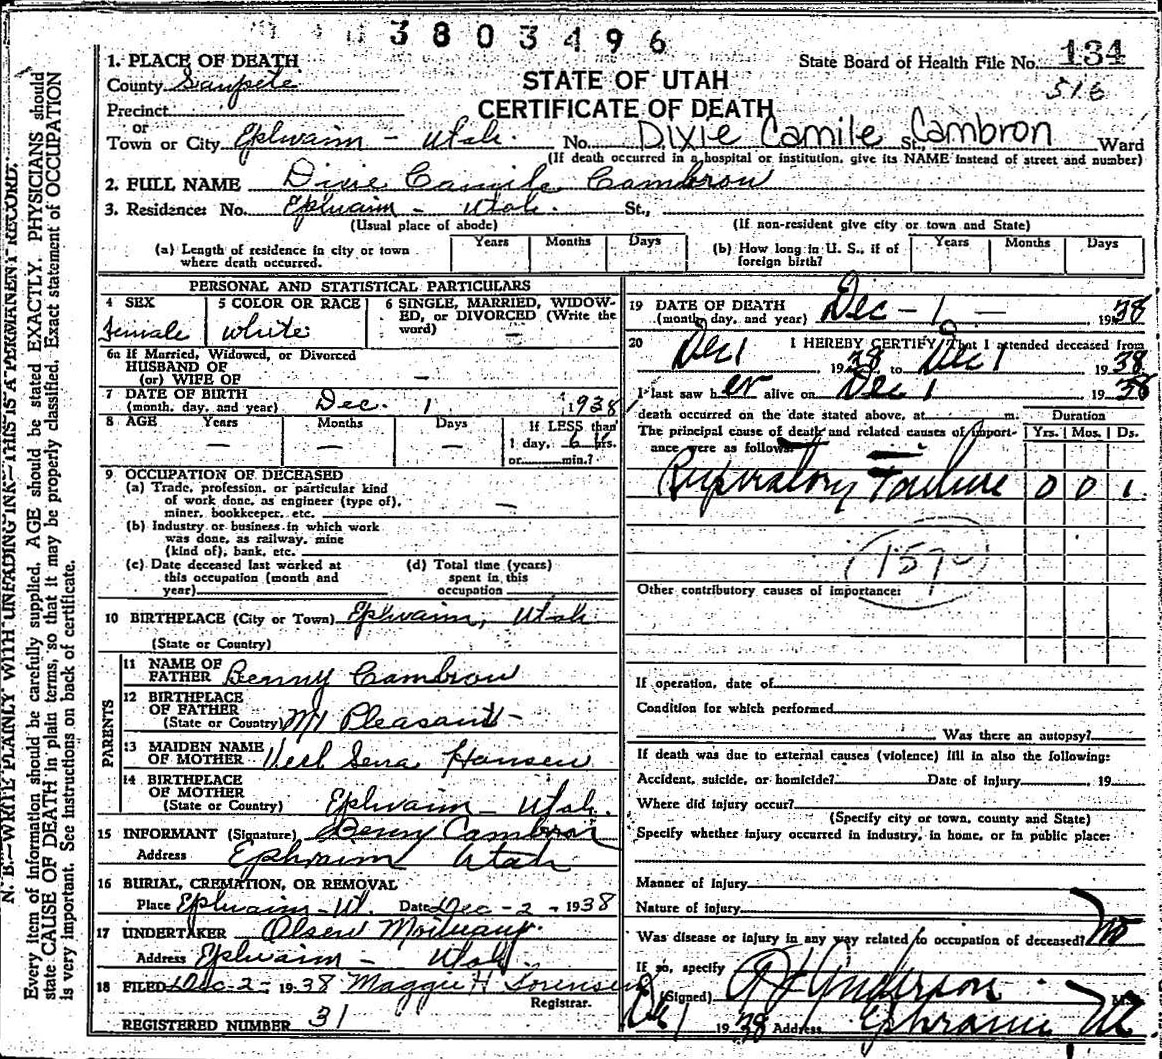 3803496
1. PLACE OF DEATH
State Board of Health File No. 134
County Sanpete
STATE OF UTAH
516
Precinct
CERTIFICATE OF DEATH
or
Town or City Ephraim - Utah. No. Dixie Camile St., Cambron Ward
(If death occurred in a hospital or institution, give its NAME instead of street and number)
2. FULL NAME Dixie Camile Cambron
3. Residence: No. Ephraim - Utah. St.,
(Usual place of abode) (If non-resident give city or town and State)
(a) Length of residence in city or town where death occurred. Years Months Days (b) How long in U. S., if of foreign birth? Years Months Days
PERSONAL AND STATISTICAL PARTICULARS
4 SEX 5 COLOR OR RACE 6 SINGLE, MARRIED, WIDOW-
ED, or DIVORCED (Write the
word) —
female white
6a If Married, Widowed, or Divorced
HUSBAND OF
(or) WIFE OF —
7 DATE OF BIRTH
(month, day, and year) Dec. 1 1938
8 AGE Years Months Days If LESS than
— — — 1 day, 6 hrs.
or min.?
9 OCCUPATION OF DECEASED
(a) Trade, profession, or particular kind
of work done, as engineer (type of),
miner, bookkeeper, etc. —
(b) Industry or business in which work
was done, as railway, mine
(kind of), bank, etc.
(c) Date deceased last worked at
this occupation (month and
year)
(d) Total time (years)
spent in this
occupation
10 BIRTHPLACE (City or Town) Ephraim, Utah
(State or Country)
PARENTS
11 NAME OF
FATHER Benny Cambron
12 BIRTHPLACE
OF FATHER
(State or Country) Mt Pleasant -
13 MAIDEN NAME
OF MOTHER Sena Hansen
14 BIRTHPLACE
OF MOTHER
(State or Country) Ephraim - Utah.
15 INFORMANT (Signature) Benny Cambron
Address Ephraim Utah
16 BURIAL, CREMATION, OR REMOVAL
Place Ephraim - Ut. Date Dec - 2 - 1938
17 UNDERTAKER Olsen Mortuary.
Address Ephraim - Utah.
18 FILED Dec - 2 - 1938 Maggie H Sorensen
Registrar.
REGISTERED NUMBER 31
19 DATE OF DEATH
(month, day, and year) Dec - 1 - , 1938
20 I HEREBY CERTIFY, That I attended deceased from
Dec 1, 1938 to Dec 1, 1938
I last saw her alive on Dec 1 1938
death occurred on the date stated above, at m.
The principal cause of death and related causes of import-
ance were as follows:
Duration
Yrs. Mos. Ds.
Respiratory Failure 0 0 1
Other contributory causes of importance:
If operation, date of
Condition for which performed
Was there an autopsy?
If death was due to external causes (violence) fill in also the following:
Accident, suicide, or homicide? Date of injury 19
Where did injury occur?
(Specify city or town, county and State)
Specify whether injury occurred in industry, in home, or in public place:
Manner of injury
Nature of injury
Was disease or injury in any way related to occupation of deceased? No
If so, specify
(Signed) Anderson M.
Dec 1 1938 Address Ephraim Ut
N. B.—WRITE PLAINLY WITH UNFADING INK—THIS IS A PERMANENT RECORD.
Every item of information should be carefully supplied. AGE should be stated EXACTLY. PHYSICIANS should
state CAUSE OF DEATH in plain terms, so that it may be properly classified. Exact statement of OCCUPATION
is very important. See instructions on back of certificate.